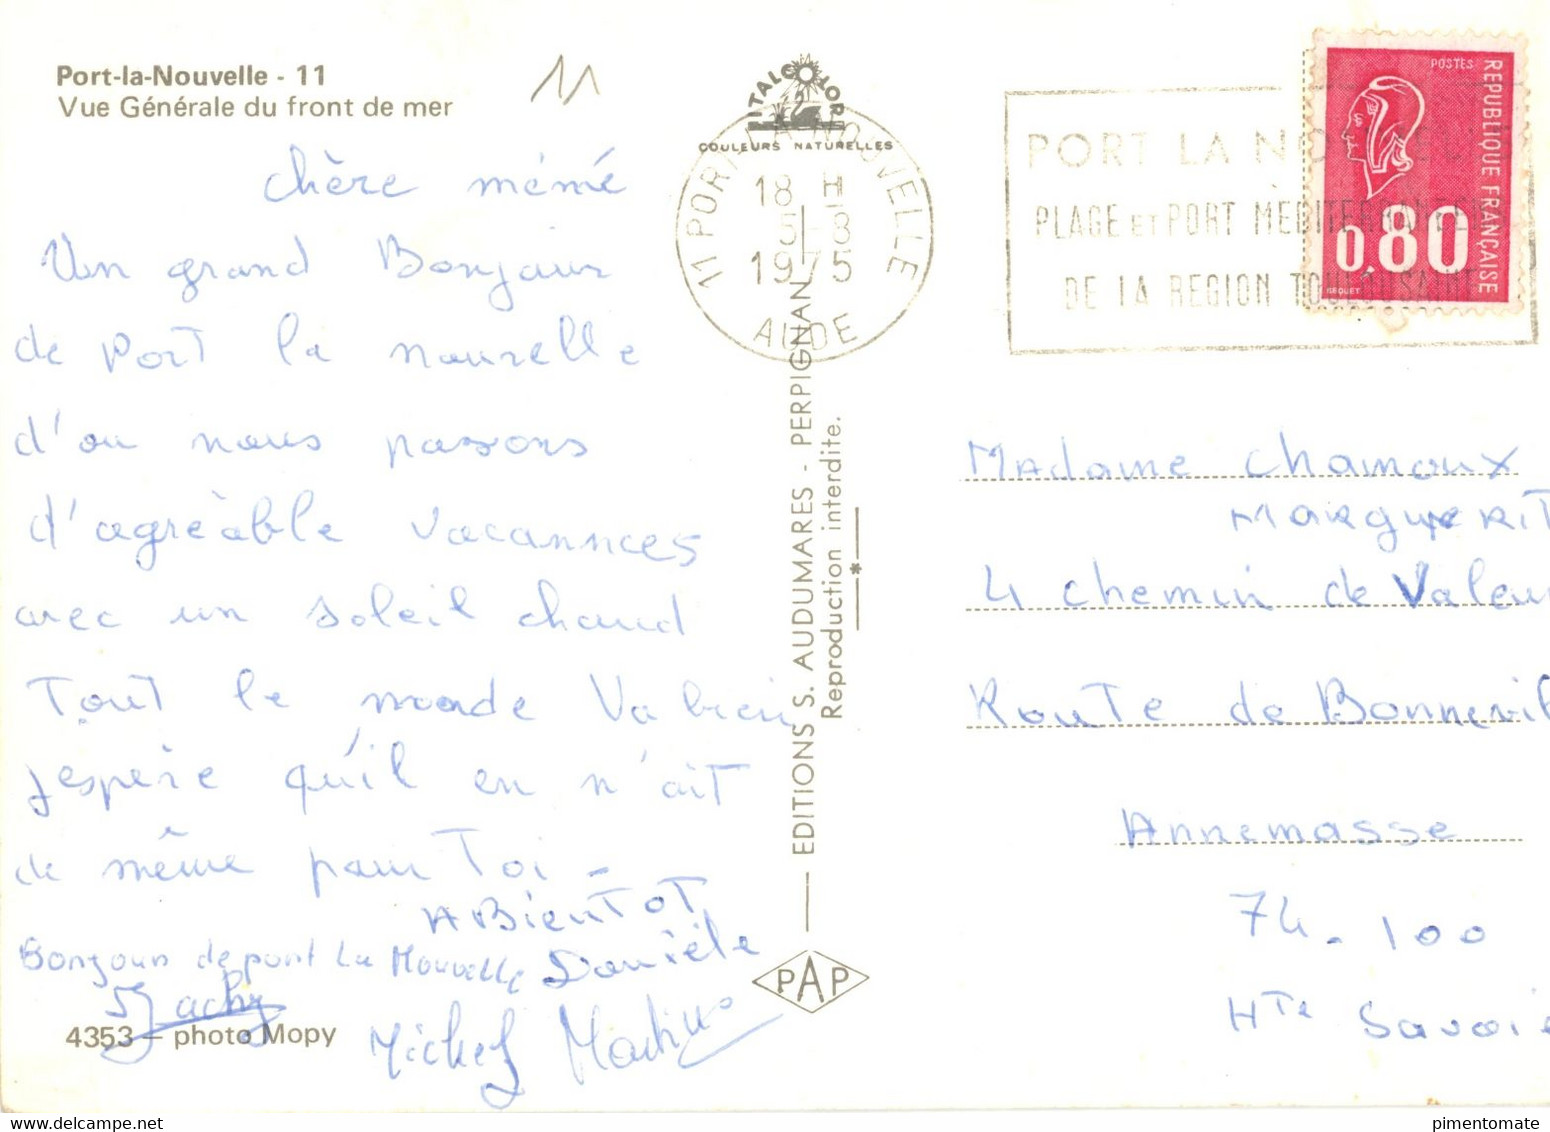 Port-la-Nouvelle - 11
Vue Générale du front de mer
11
ITALCOLOR
COULEURS NATURELLES
11 PORT LA NOUVELLE
18 H
5-8
1975
AUDE
PORT LA NOUVELLE
PLAGE ET PORT MEDITERRANEEN
DE LA REGION TOULOUSAINE
POSTES
REPUBLIQUE FRANÇAISE
0,80
BEQUET
chère mémé
Un grand Bonjour
de Port la nouvelle
d'ou nous passons
d'agréable vacannces
avec un soleil chaud
Tout le monde Va bien
j'espère qu'il en n'ait
de même pour Toi -
A BienTOT
Bonjour de port La Nouvelle Danièle
Michel
4353 - photo Mopy
EDITIONS S. AUDUMARES - PERPIGNAN
Reproduction interdite.
PAP
Madame Chamoux
Marguerit
4 chemin de Valeur
Route de Bonnevill
Annemasse
74-100
Hte Savoie
pimentomate